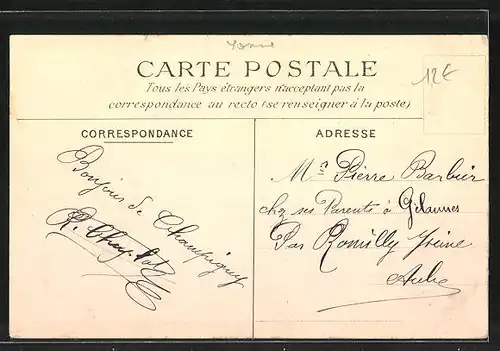 Yonne
CARTE POSTALE
12€
Tous les Pays étrangers n'acceptant pas la
correspondance au recto (se renseigner à la poste)
CORRESPONDANCE
Bonjour de Champigny
ADRESSE
Mr Pierre Barbier
chez ses Parents à Gélannes
Par Romilly s/seine
Aube